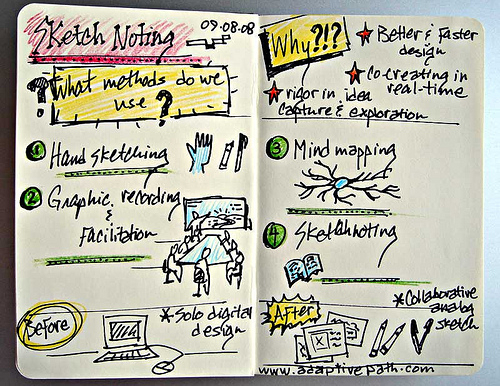 Sketch Noting
09.08.08
What methods do we
use?
1 Hand sketching
2 Graphic recording
&
Facilitation
Before
*Solo digital
design
Why?!?
Better & faster
design
Co-creating in
real-time
rigor in idea
capture & exploration
3 Mind mapping
4 Sketchnoting
After
*Collaborative
analog
sketch
www.adaptivepath.com